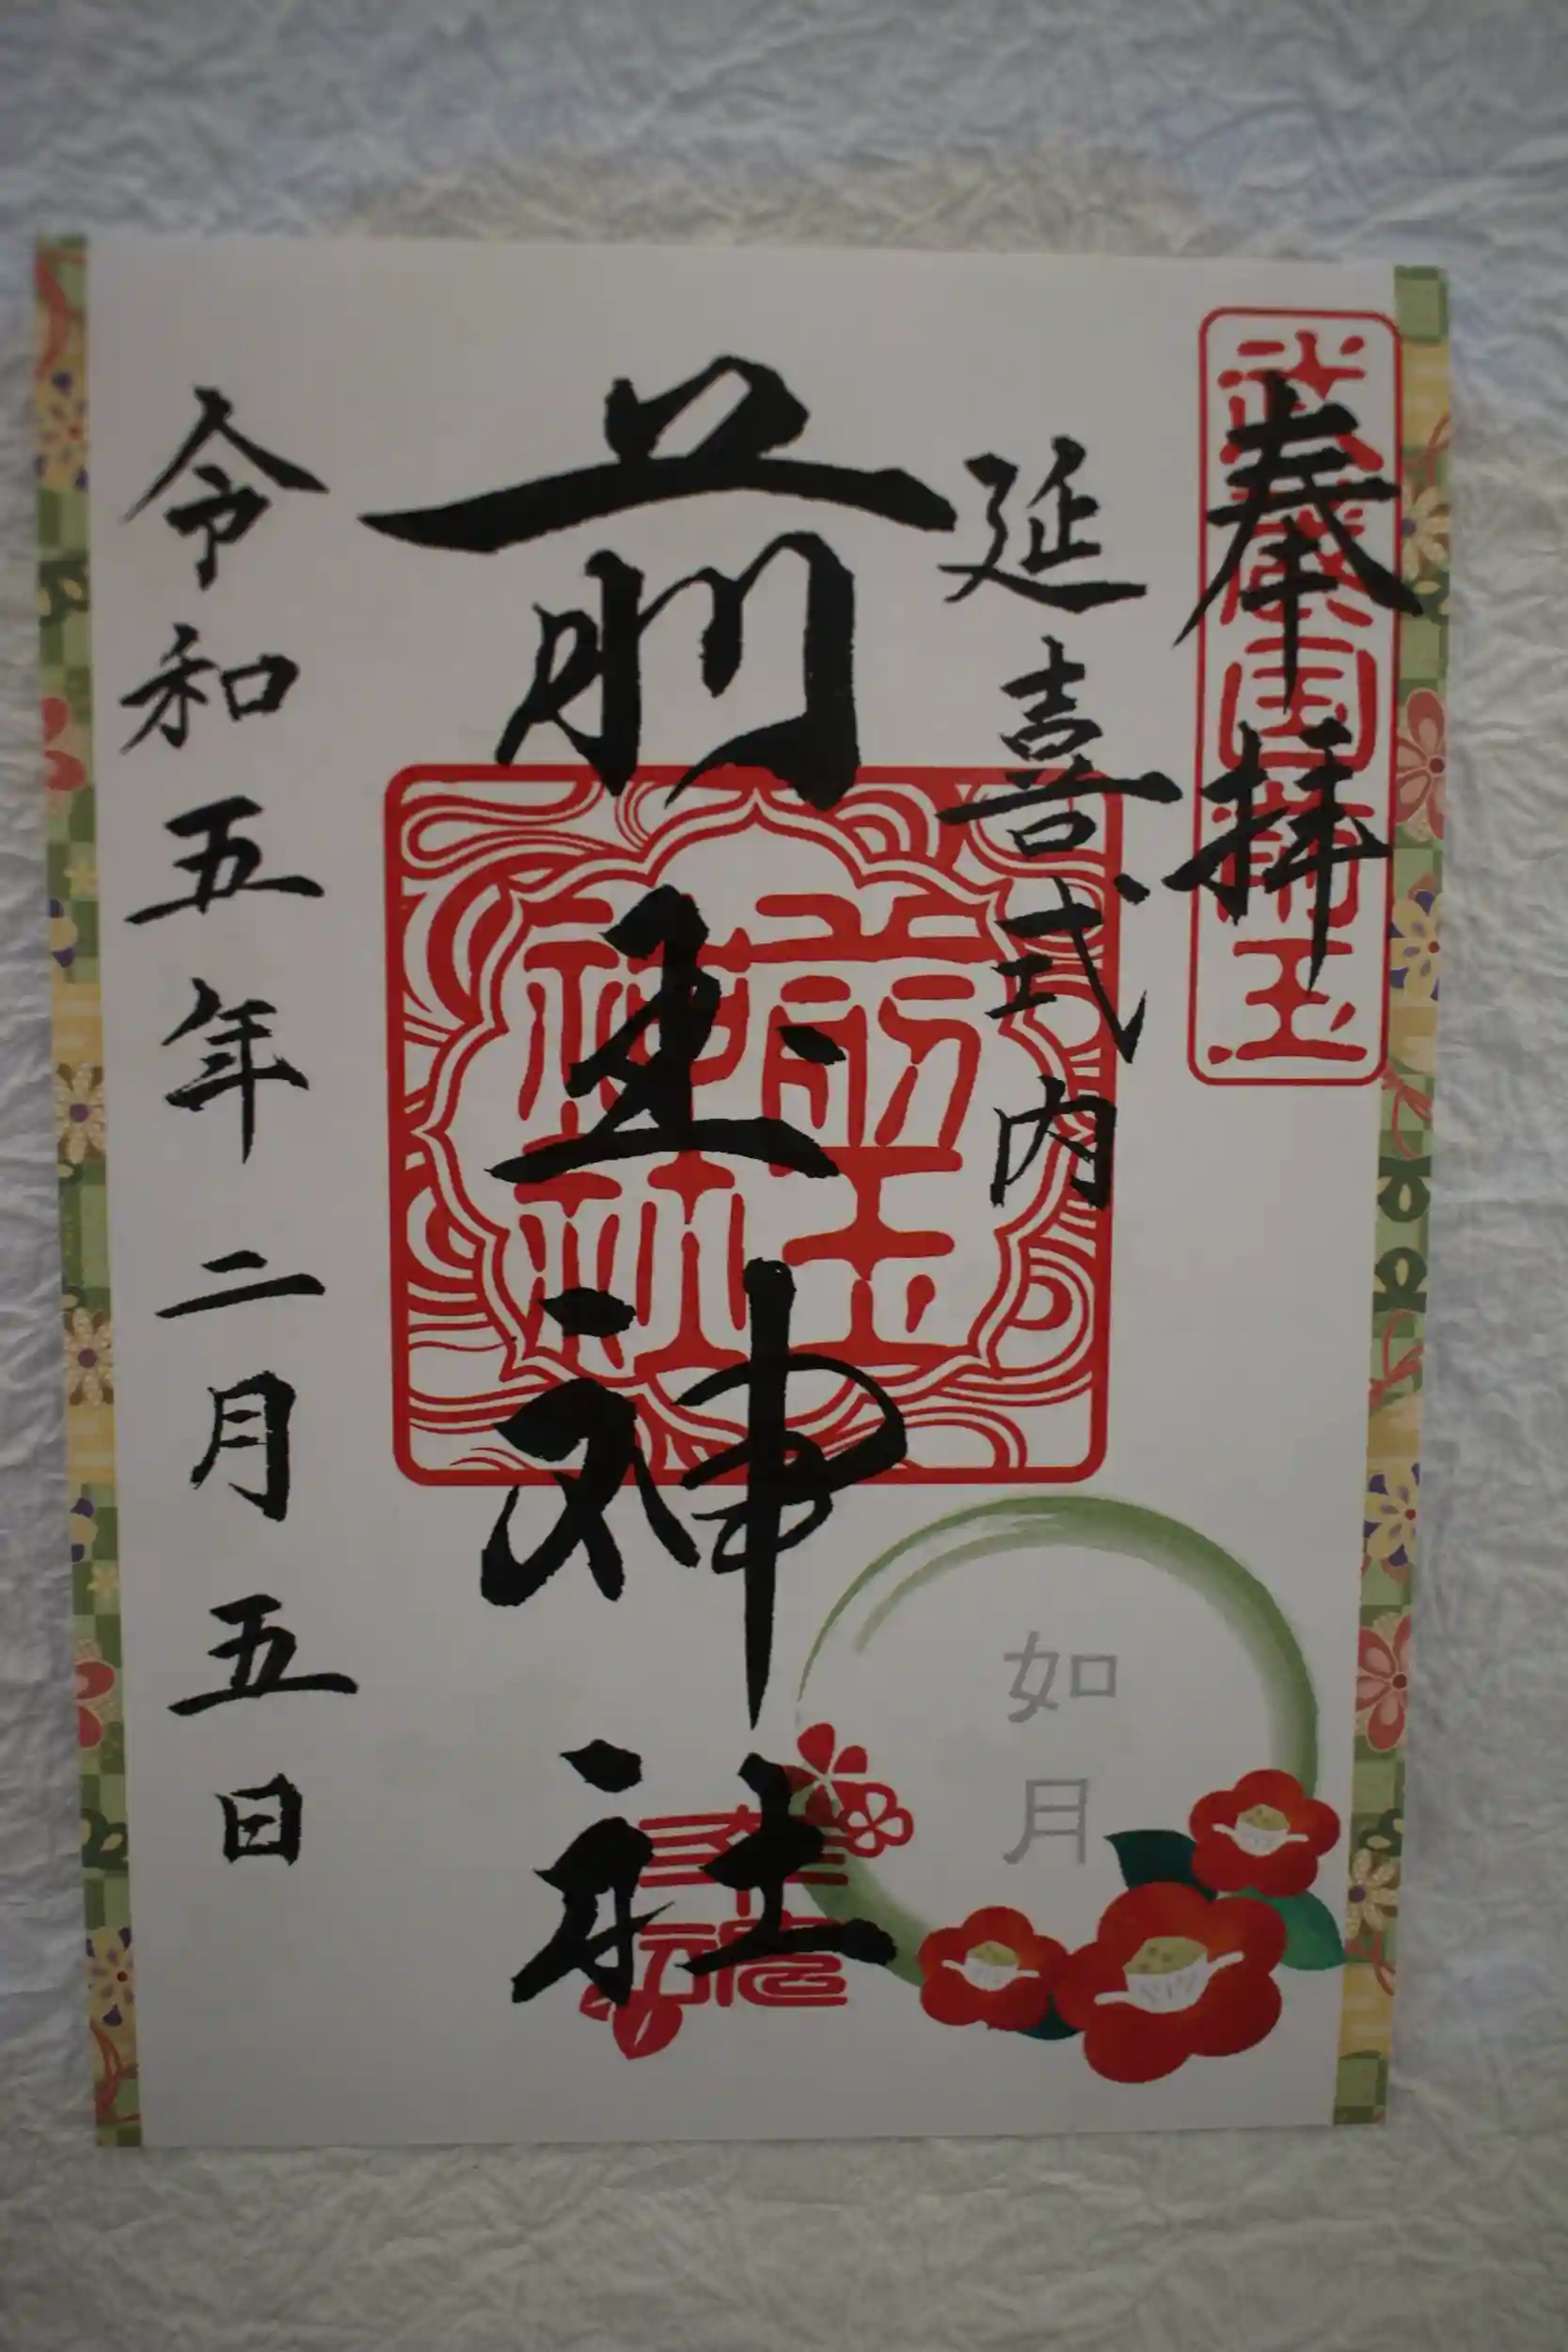 奉拝
武蔵国前玉
延喜式内
前玉神社
前玉神社
如月
令和五年二月五日